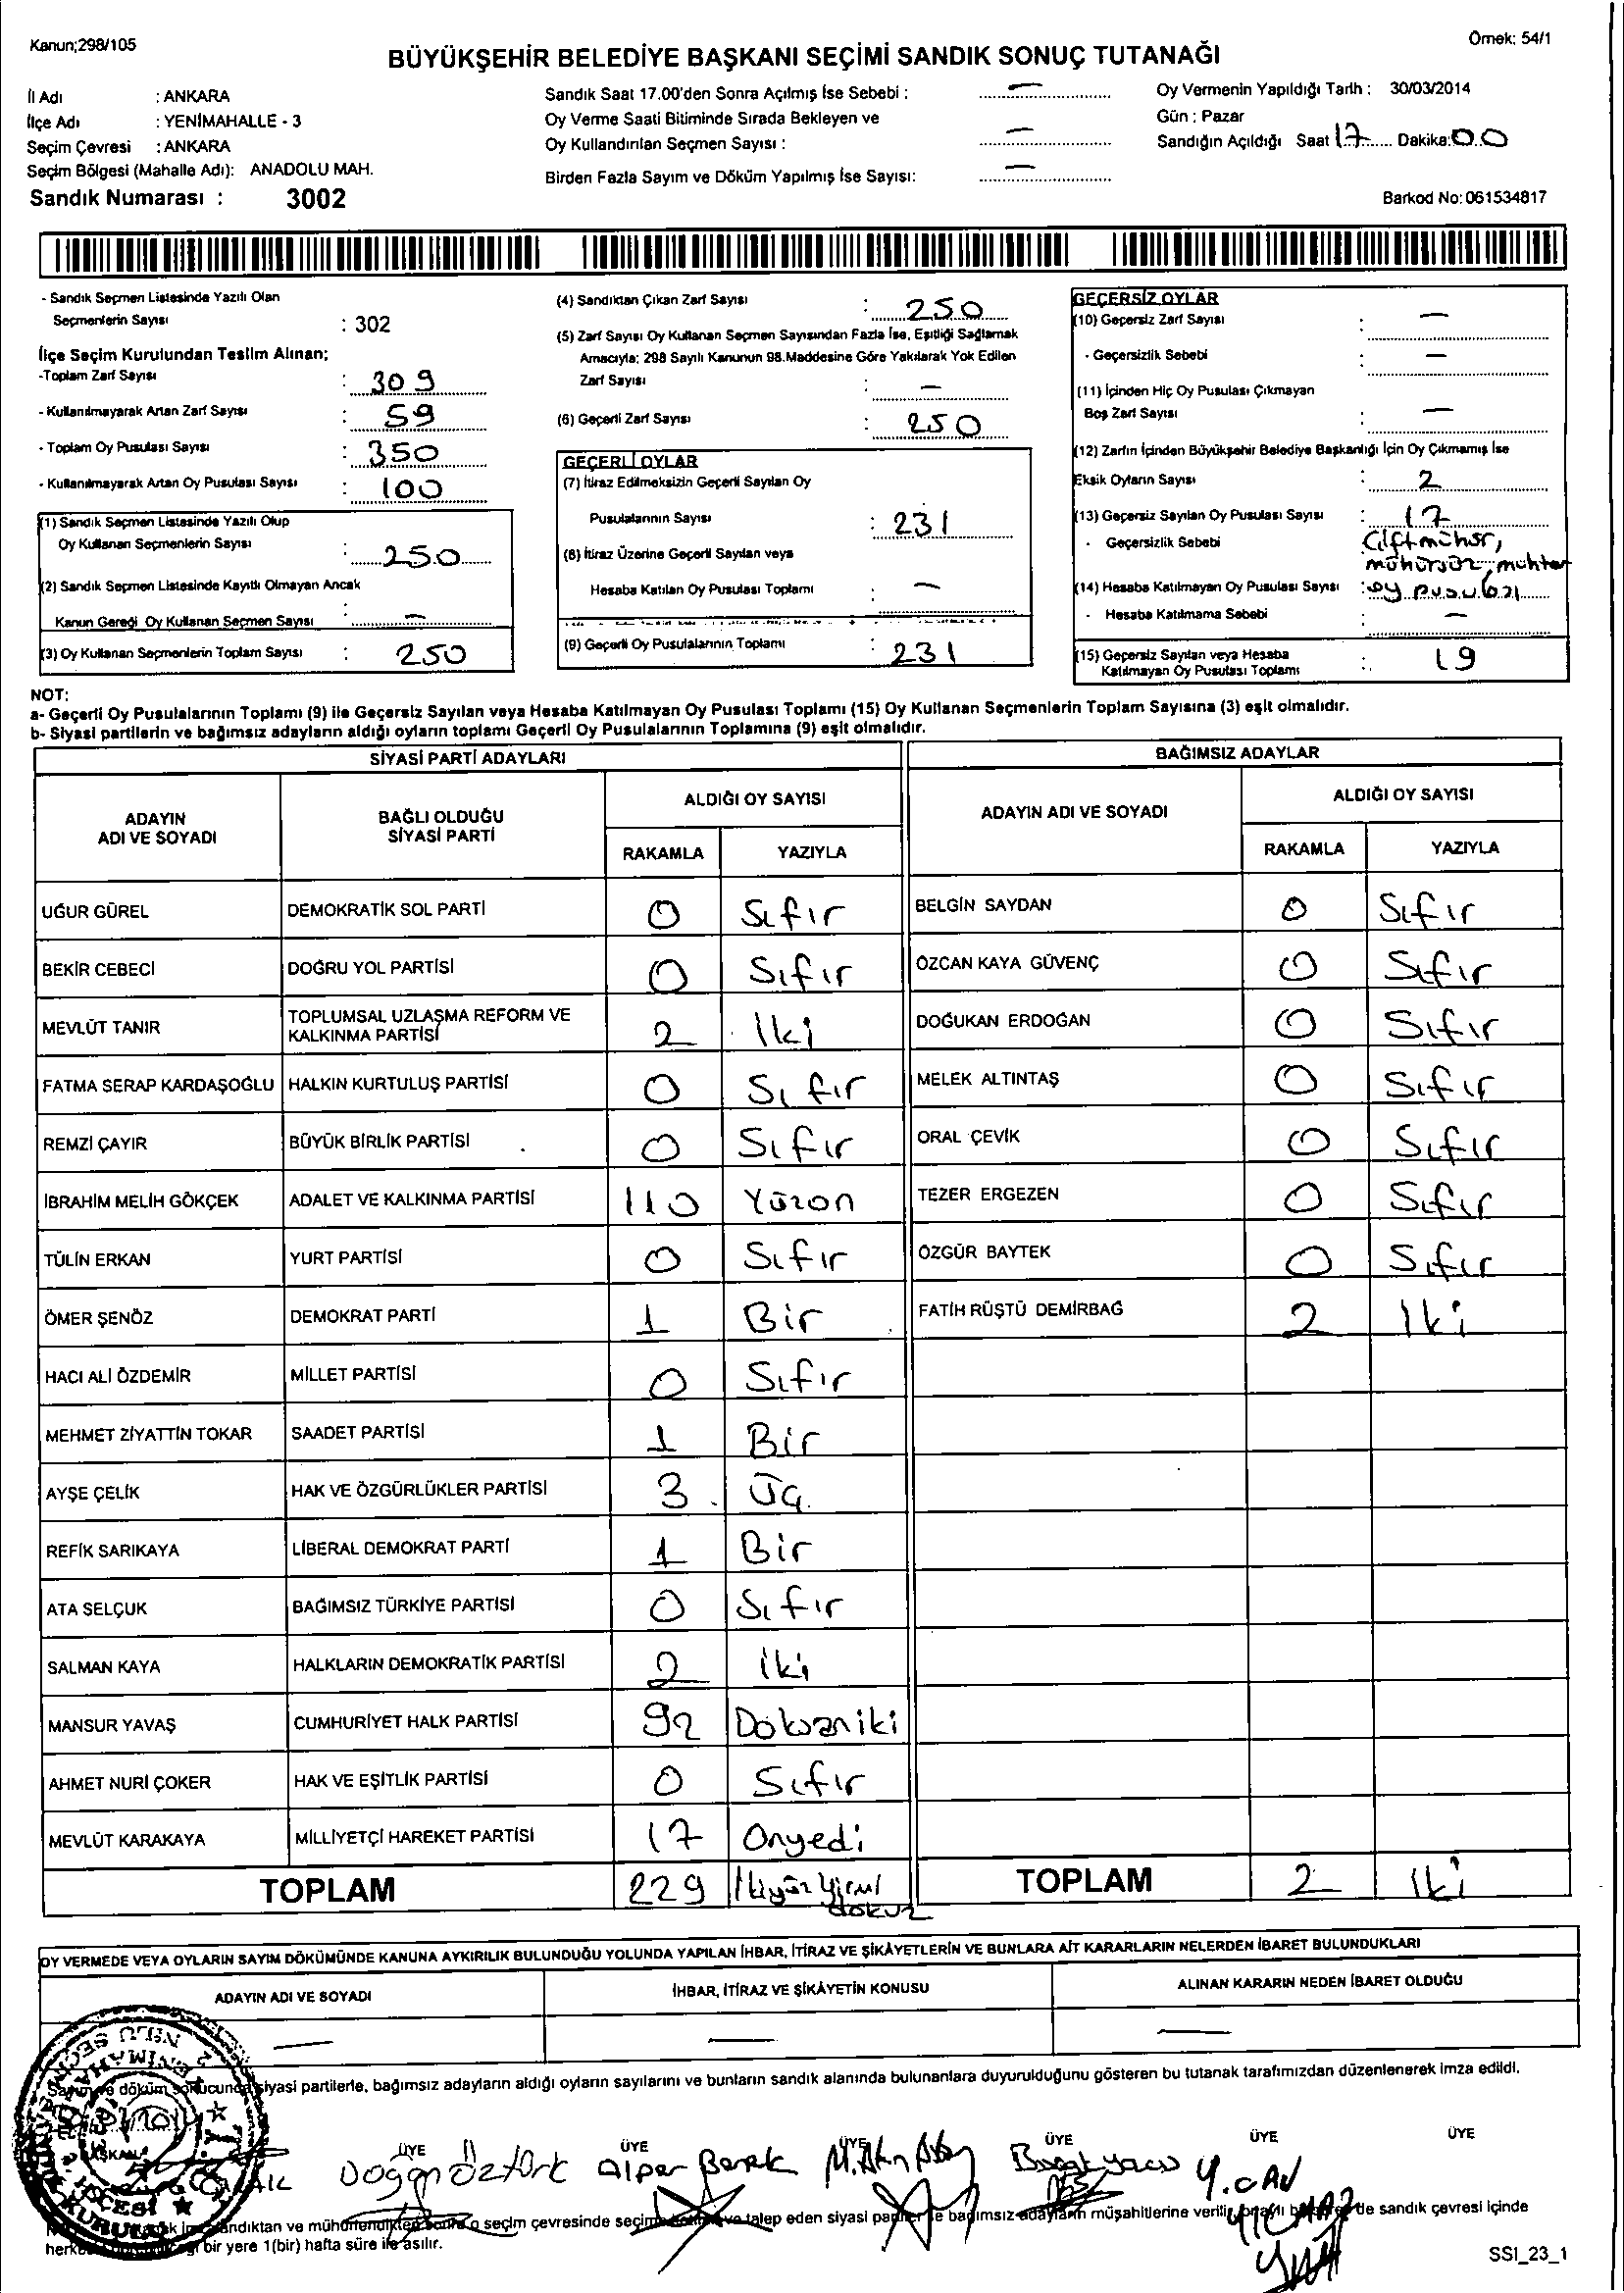 Kanun;298/105
Örnek: 54/1
BÜYÜKŞEHİR BELEDİYE BAŞKANI SEÇİMİ SANDIK SONUÇ TUTANAĞI
İl Adı : ANKARA
İlçe Adı : YENİMAHALLE - 3
Seçim Çevresi : ANKARA
Seçim Bölgesi (Mahalle Adı): ANADOLU MAH.
Sandık Numarası : 3002
Sandık Saat 17.00'den Sonra Açılmış İse Sebebi : —
Oy Verme Saati Bitiminde Sırada Bekleyen ve
Oy Kullandırılan Seçmen Sayısı : —
Birden Fazla Sayım ve Döküm Yapılmış İse Sayısı: —
Oy Vermenin Yapıldığı Tarih : 30/03/2014
Gün : Pazar
Sandığın Açıldığı Saat 17 Dakika: 00
Barkod No: 061534817
- Sandık Seçmen Listesinde Yazılı Olan
Seçmenlerin Sayısı : 302
İlçe Seçim Kurulundan Teslim Alınan;
-Toplam Zarf Sayısı : 309
- Kullanılmayarak Artan Zarf Sayısı : 59
- Toplam Oy Pusulası Sayısı : 350
- Kullanılmayarak Artan Oy Pusulası Sayısı : 100
(1) Sandık Seçmen Listesinde Yazılı Olup
Oy Kullanan Seçmenlerin Sayısı : 250
(2) Sandık Seçmen Listesinde Kayıtlı Olmayan Ancak
Kanun Gereği Oy Kullanan Seçmen Sayısı : —
(3) Oy Kullanan Seçmenlerin Toplam Sayısı : 250
(4) Sandıktan Çıkan Zarf Sayısı : 250
(5) Zarf Sayısı Oy Kullanan Seçmen Sayısından Fazla İse, Eşitliği Sağlamak
Amacıyla; 298 Sayılı Kanunun 98.Maddesine Göre Yakılarak Yok Edilen
Zarf Sayısı : —
(6) Geçerli Zarf Sayısı : 250
GEÇERLİ OYLAR
(7) İtiraz Edilmeksizin Geçerli Sayılan Oy
Pusulalarının Sayısı : 231
(8) İtiraz Üzerine Geçerli Sayılan veya
Hesaba Katılan Oy Pusulası Toplamı : —
(9) Geçerli Oy Pusulalarının Toplamı : 231
GEÇERSİZ OYLAR
(10) Geçersiz Zarf Sayısı : —
- Geçersizlik Sebebi : —
(11) İçinden Hiç Oy Pusulası Çıkmayan
Boş Zarf Sayısı : —
(12) Zarfın İçinden Büyükşehir Belediye Başkanlığı İçin Oy Çıkmamış İse
Eksik Oyların Sayısı : 2
(13) Geçersiz Sayılan Oy Pusulası Sayısı : 17
- Geçersizlik Sebebi Çift mühür,
mühürsüz, muhtar
(14) Hesaba Katılmayan Oy Pusulası Sayısı : oy pusulası
- Hesaba Katılmama Sebebi : —
(15) Geçersiz Sayılan veya Hesaba
Katılmayan Oy Pusulası Toplamı : 19
NOT:
a- Geçerli Oy Pusulalarının Toplamı (9) ile Geçersiz Sayılan veya Hesaba Katılmayan Oy Pusulası Toplamı (15) Oy Kullanan Seçmenlerin Toplam Sayısına (3) eşit olmalıdır.
b- Siyasi partilerin ve bağımsız adayların aldığı oyların toplamı Geçerli Oy Pusulalarının Toplamına (9) eşit olmalıdır.
SİYASİ PARTİ ADAYLARI
ADAYIN ADI VE SOYADI
BAĞLI OLDUĞU SİYASİ PARTİ
ALDIĞI OY SAYISI
RAKAMLA YAZIYLA
UĞUR GÜREL DEMOKRATİK SOL PARTİ 0 Sıfır
BEKİR CEBECİ DOĞRU YOL PARTİSİ 0 Sıfır
MEVLÜT TANIR TOPLUMSAL UZLAŞMA REFORM VE KALKINMA PARTİSİ 2 İki
FATMA SERAP KARDAŞOĞLU HALKIN KURTULUŞ PARTİSİ 0 Sıfır
REMZİ ÇAYIR BÜYÜK BİRLİK PARTİSİ 0 Sıfır
İBRAHİM MELİH GÖKÇEK ADALET VE KALKINMA PARTİSİ 110 Yüzon
TÜLİN ERKAN YURT PARTİSİ 0 Sıfır
ÖMER ŞENÖZ DEMOKRAT PARTİ 1 Bir
HACI ALİ ÖZDEMİR MİLLET PARTİSİ 0 Sıfır
MEHMET ZİYATTİN TOKAR SAADET PARTİSİ 1 Bir
AYŞE ÇELİK HAK VE ÖZGÜRLÜKLER PARTİSİ 3 Üç
REFİK SARIKAYA LİBERAL DEMOKRAT PARTİ 1 Bir
ATA SELÇUK BAĞIMSIZ TÜRKİYE PARTİSİ 0 Sıfır
SALMAN KAYA HALKLARIN DEMOKRATİK PARTİSİ 2 İki
MANSUR YAVAŞ CUMHURİYET HALK PARTİSİ 92 Doksaniki
AHMET NURİ ÇOKER HAK VE EŞİTLİK PARTİSİ 0 Sıfır
MEVLÜT KARAKAYA MİLLİYETÇİ HAREKET PARTİSİ 17 Onyedi
TOPLAM 229 İkiyüzyirmi dokuz
BAĞIMSIZ ADAYLAR
ADAYIN ADI VE SOYADI
ALDIĞI OY SAYISI
RAKAMLA YAZIYLA
BELGİN SAYDAN 0 Sıfır
ÖZCAN KAYA GÜVENÇ 0 Sıfır
DOĞUKAN ERDOĞAN 0 Sıfır
MELEK ALTINTAŞ 0 Sıfır
ORAL ÇEVİK 0 Sıfır
TEZER ERGEZEN 0 Sıfır
ÖZGÜR BAYTEK 0 Sıfır
FATİH RÜŞTÜ DEMİRBAĞ 2 İki
TOPLAM 2 İki
OY VERMEDE VEYA OYLARIN SAYIM DÖKÜMÜNDE KANUNA AYKIRILIK BULUNDUĞU YOLUNDA YAPILAN İHBAR, İTİRAZ VE ŞİKÂYETLERİN VE BUNLARA AİT KARARLARIN NELERDEN İBARET BULUNDUKLARI
ADAYIN ADI VE SOYADI
İHBAR, İTİRAZ VE ŞİKÂYETİN KONUSU
ALINAN KARARIN NEDEN İBARET OLDUĞU
— — —
Sayım ve döküm sonucunda siyasi partilerle, bağımsız adayların aldığı oyların sayılarını ve bunların sandık alanında bulunanlara duyurulduğunu gösteren bu tutanak tarafımızdan düzenlenerek imza edildi.
BAŞKAN ÜYE ÜYE ÜYE ÜYE ÜYE ÜYE
Doğan Öztürk Alper Berak
Y.CAN
YILMAZ
sandıktan ve mühürlendikten sonra o seçim çevresinde ve talep eden siyasi partiler ile bağımsız adayların müşahitlerine verilir, de sandık çevresi içinde
bir yere 1(bir) hafta süre ile asılır.
SSI_23_1